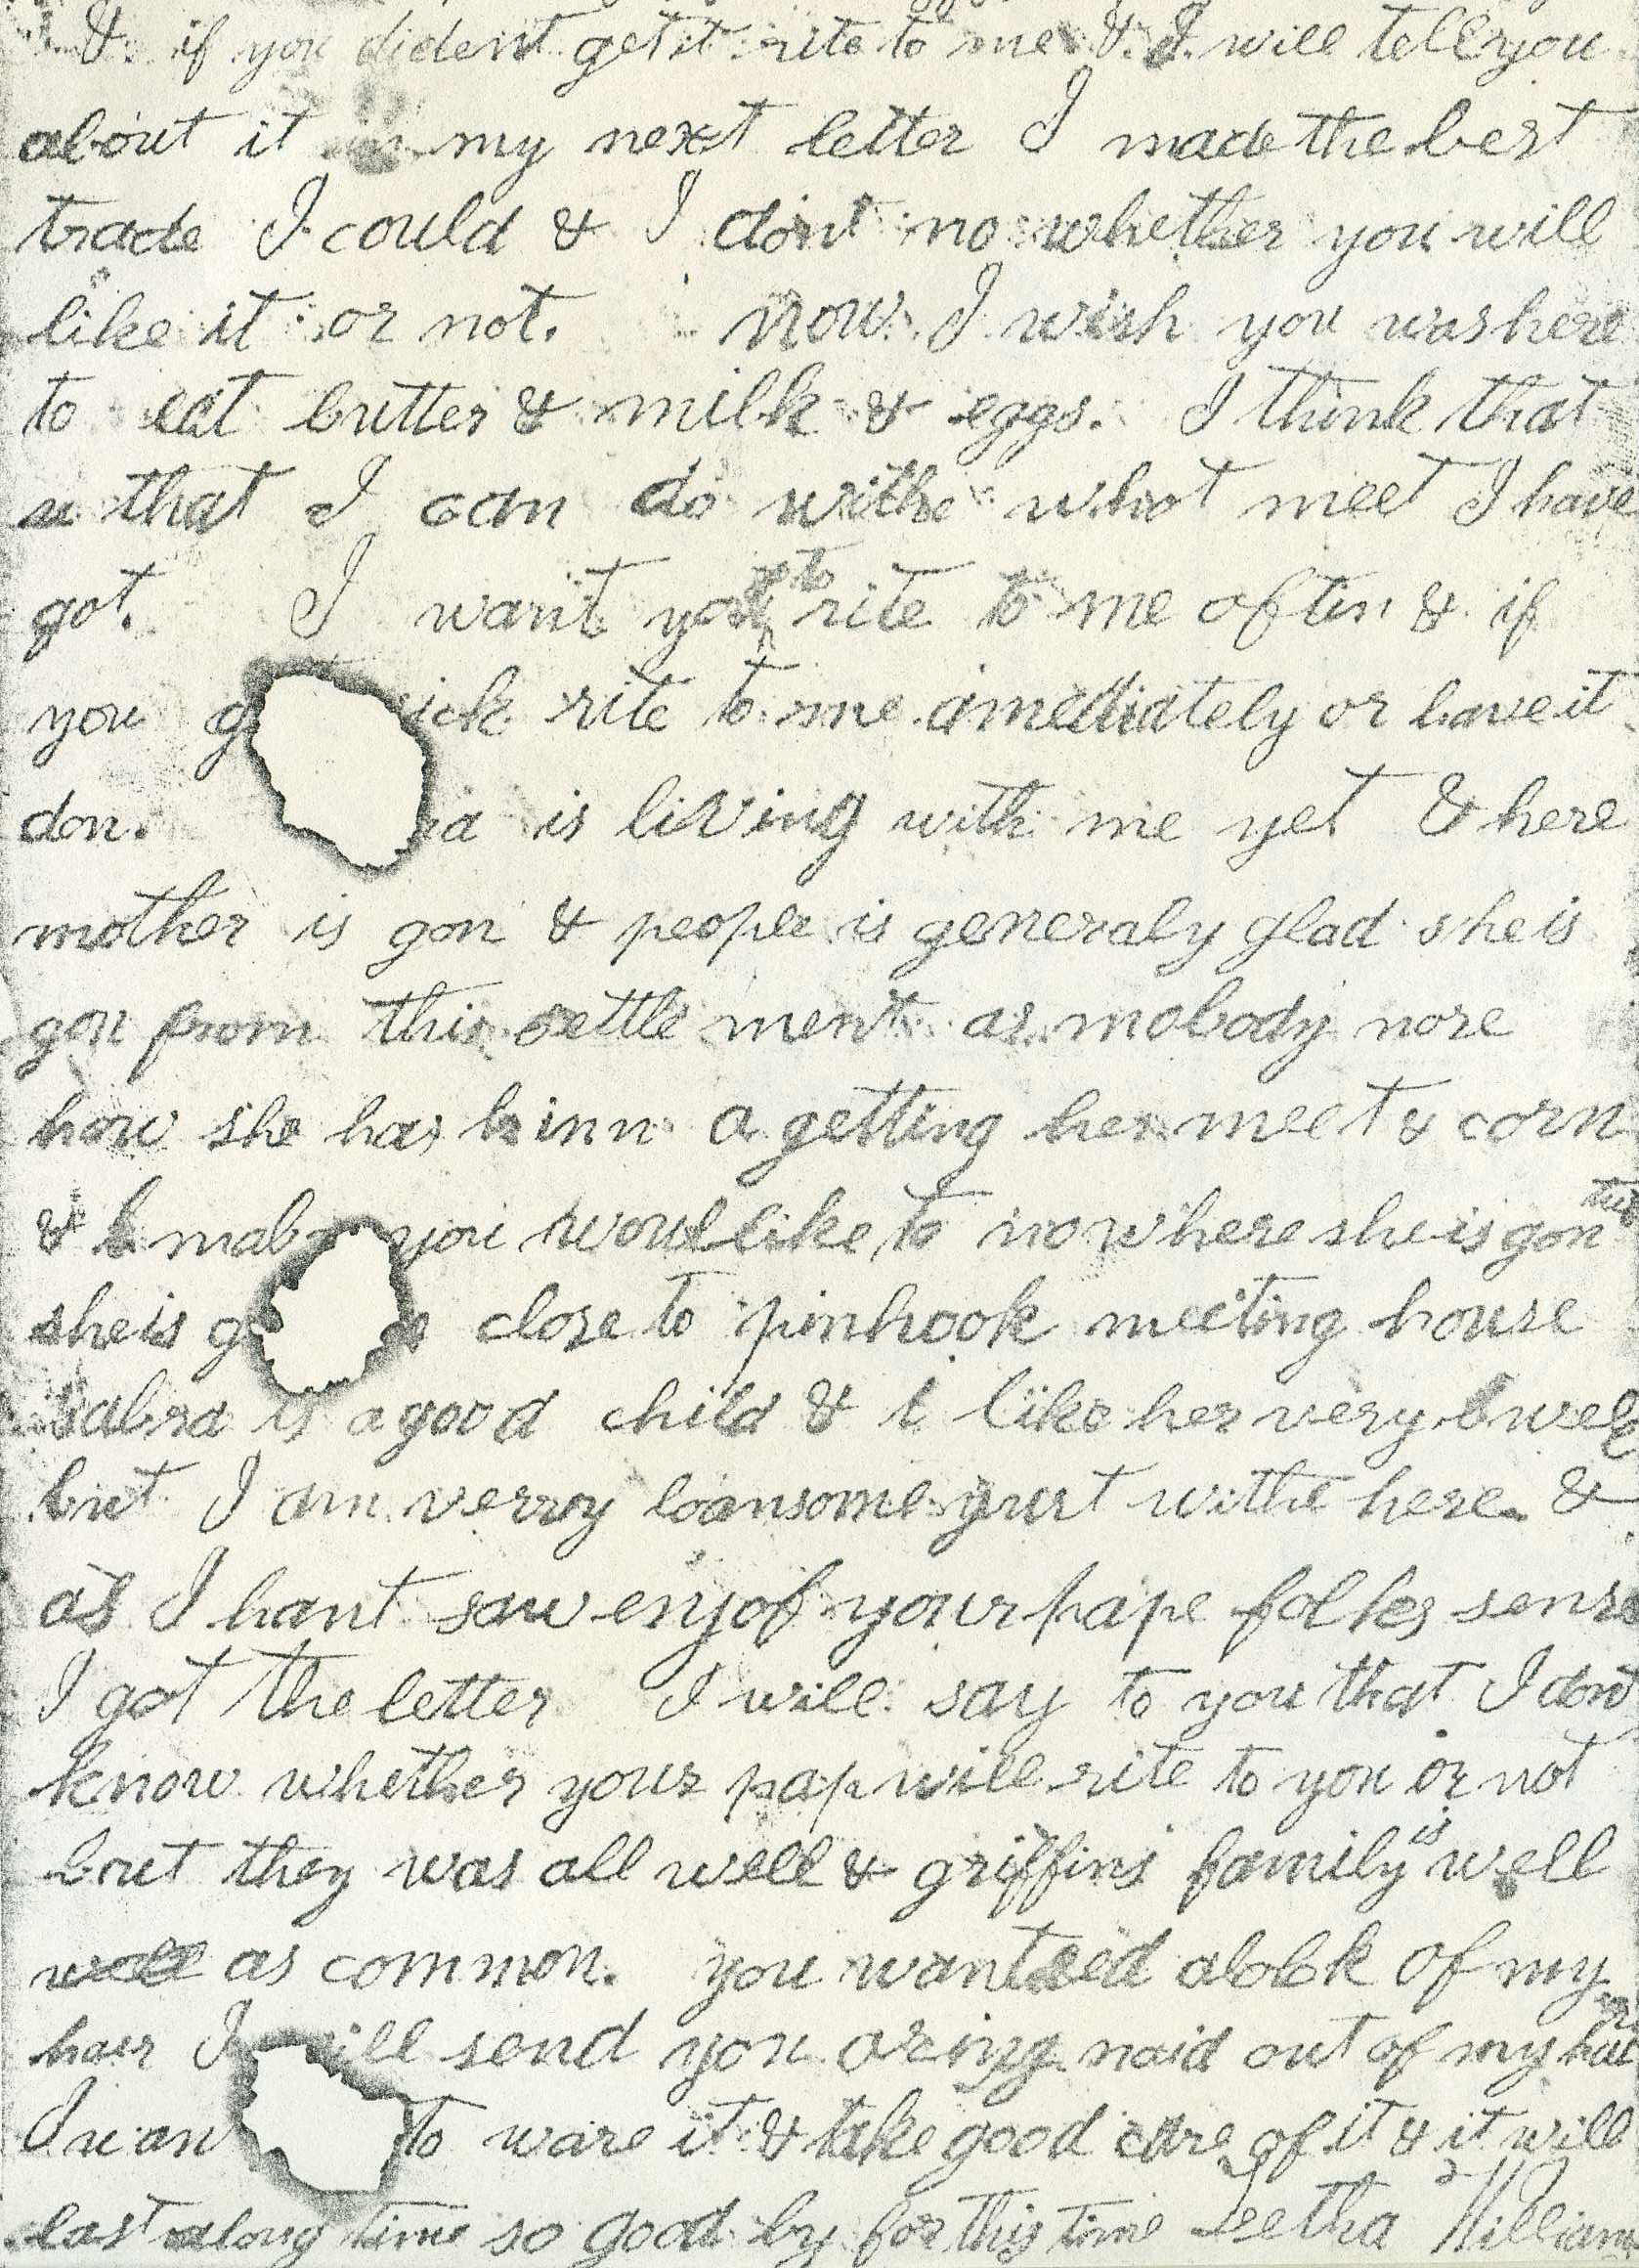 & if you dident get it rite to me & I will tell you
about it in my next letter I made the best
trade I could & I dont no whether you will
like it or not. now I wish you was here
to eat butter & milk & eggs. I think that
that I can do withe what meet I have
got. I want you to rite to me often & if
you g ick rite to me amediately or have it
don. ia is living with me yet & here
mother is gon & people is generaly glad she is
gon from this settle ment as mobody nore
how she has binn a getting her meet & corn
& mab you woul like to no where she is gon to
she is g close to pinhook meeting house
sabra is a good child & i like her very wel
but I am verry loansome just withe here. &
as I hant saw eny of your pape folks sense
I got the letter I will say to you that I dont
know whether your pap will rite to you or not
but they was all well & griffins family is well
as common. you wanted a lock of my
hair I ill send you a ring maid out of my hair
I wan to ware it & take good care of it & it will
last along time so good by for this time Letha Williams